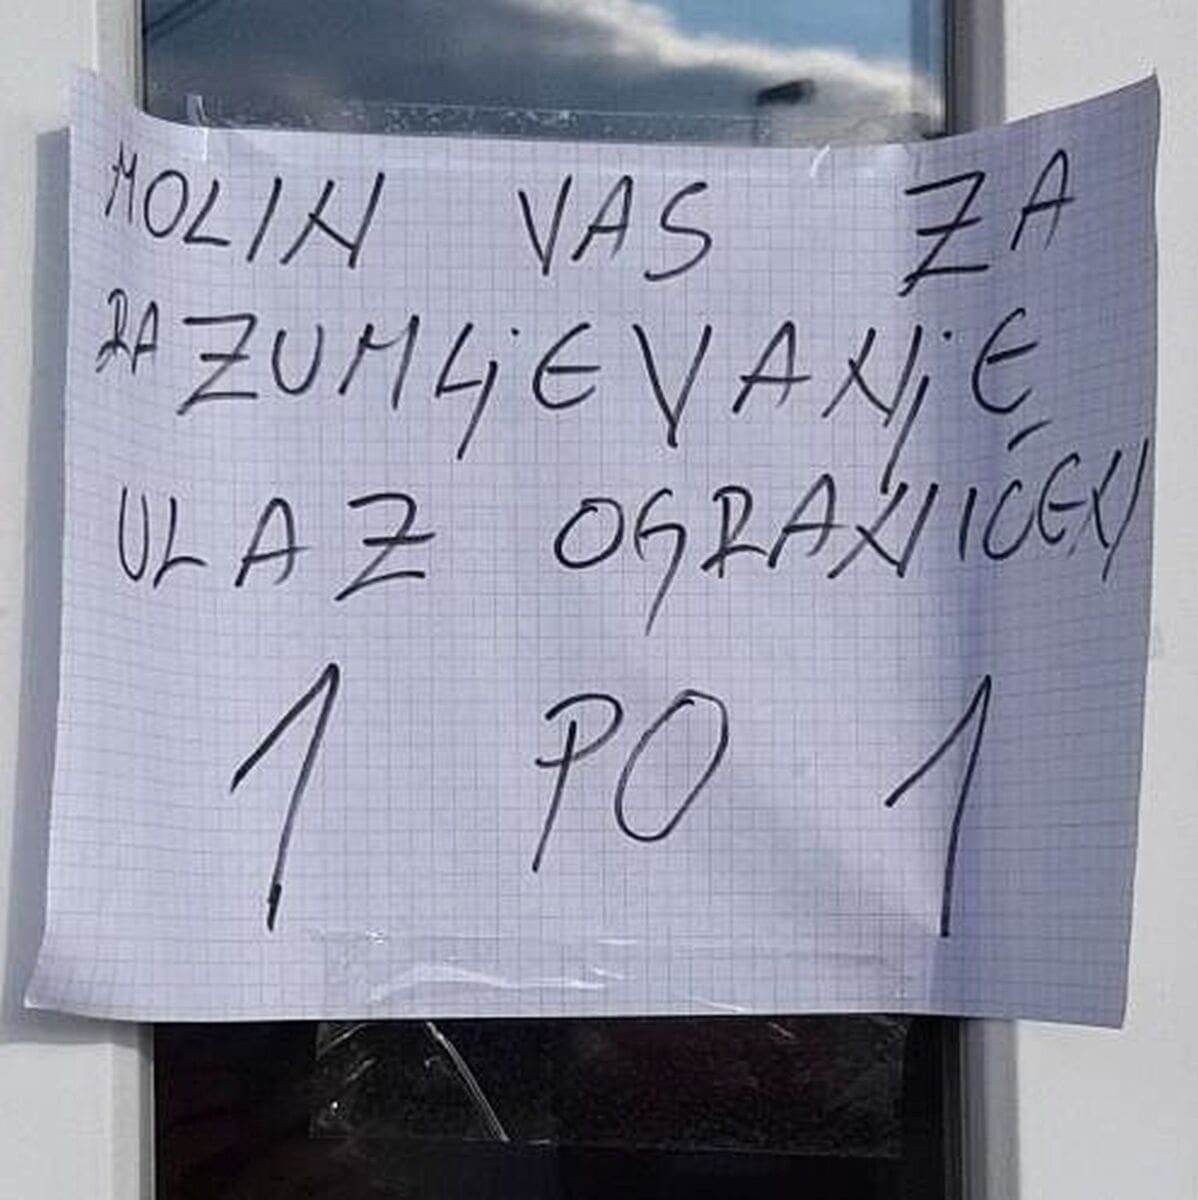 MOLIN VAS ZA
RAZUMLjEVANjE
ULAZ OGRANIČEN
1 PO 1